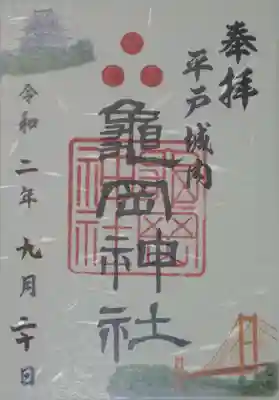 奉拝
平戸城内
龜岡神社
令和二年九月二十日